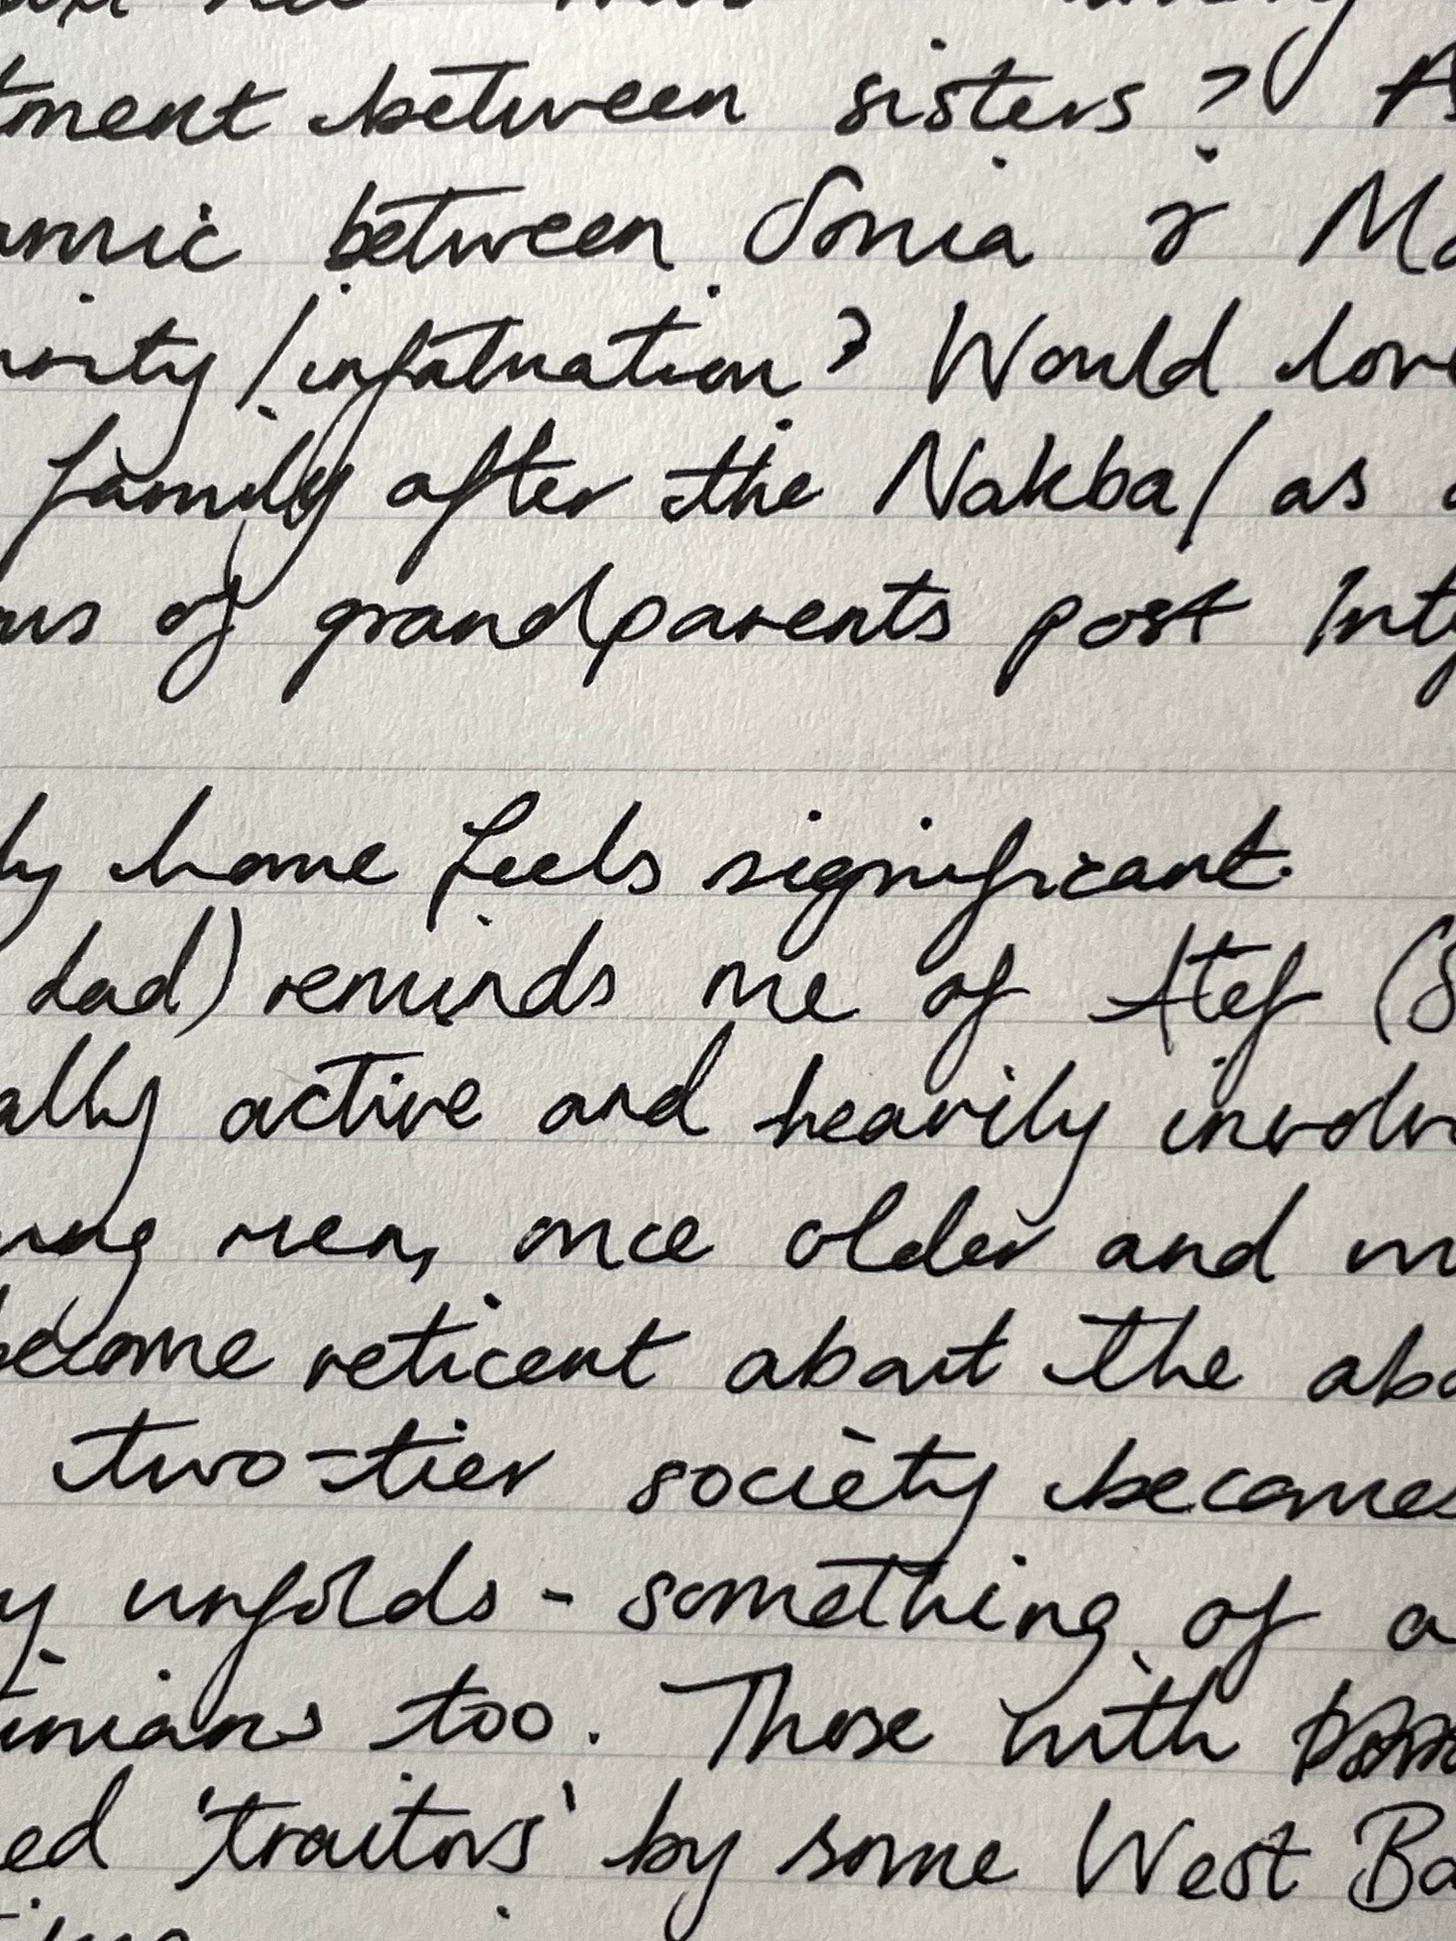 tment between sisters? As
amic between Sonia & Ma
iosity / infatuation? Would love
family after the Nakba / as
ous of grandparents post Inti
ly home feels significant.
dad) reminds me of Atef (S
ally active and heavily involv
oung men, once older and m
become reticent about the abo
two-tier society becomes
y unfolds - something of a
inians too. Those with
ed 'traitors' by some West Ba